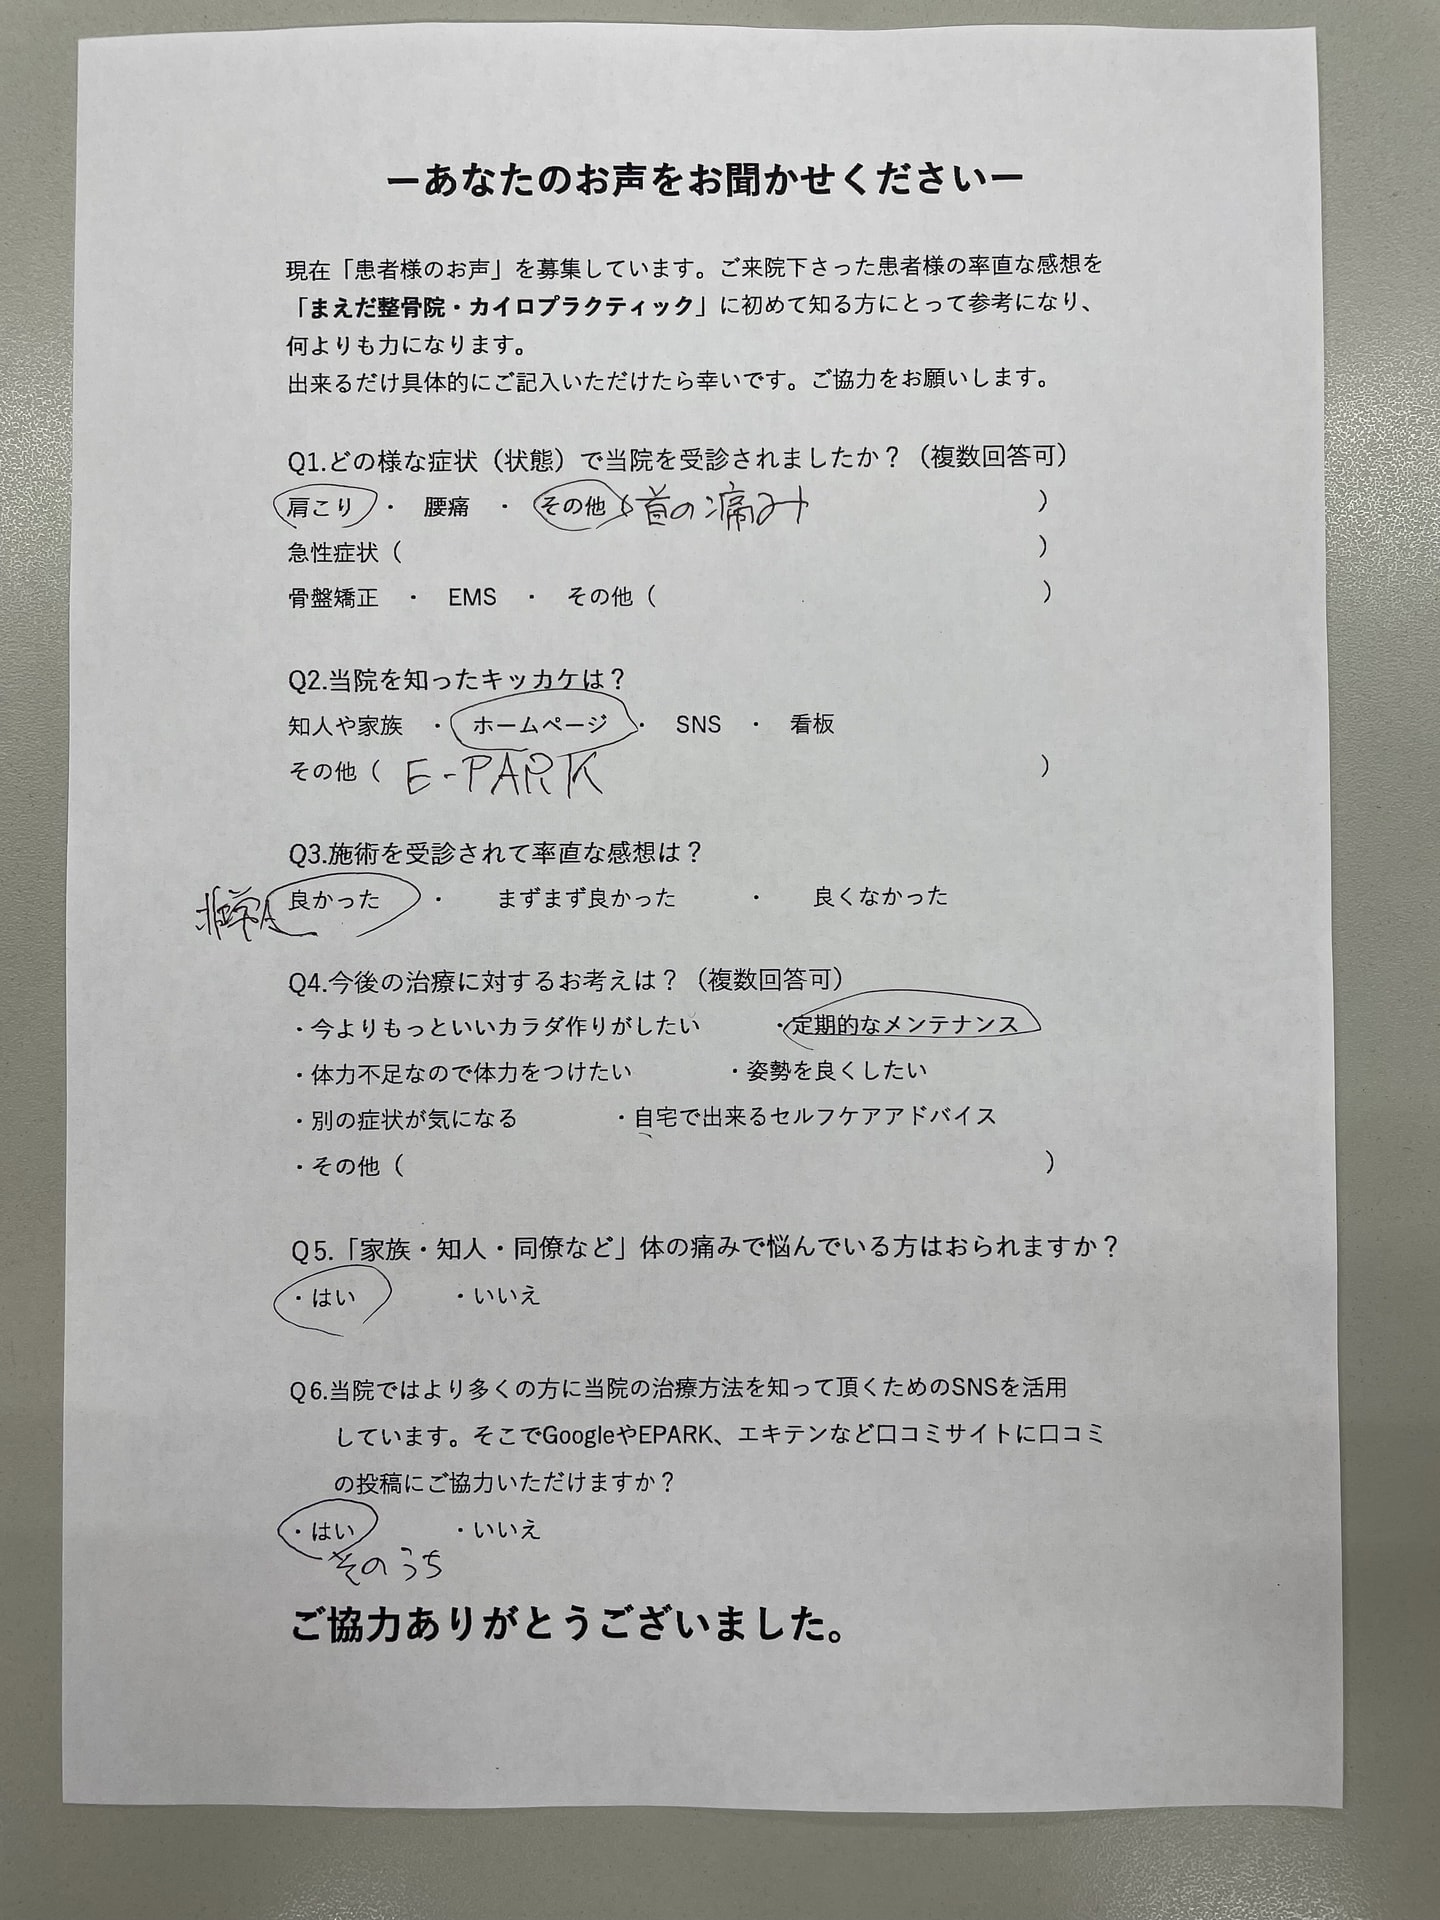 ーあなたのお声をお聞かせくださいー
現在「患者様のお声」を募集しています。ご来院下さった患者様の率直な感想を
「まえだ整骨院・カイロプラクティック」に初めて知る方にとって参考になり、
何よりも力になります。
出来るだけ具体的にご記入いただけたら幸いです。ご協力をお願いします。
Q1.どの様な症状（状態）で当院を受診されましたか？（複数回答可）
肩こり ・ 腰痛 ・ その他（首の痛み ）
急性症状（ ）
骨盤矯正 ・ EMS ・ その他（ ）
Q2.当院を知ったキッカケは？
知人や家族 ・ ホームページ ・ SNS ・ 看板
その他（ E-PARK ）
Q3.施術を受診されて率直な感想は？
良かった ・ まずまず良かった ・ 良くなかった
Q4.今後の治療に対するお考えは？（複数回答可）
・今よりもっといいカラダ作りがしたい ・定期的なメンテナンス
・体力不足なので体力をつけたい ・姿勢を良くしたい
・別の症状が気になる ・自宅で出来るセルフケアアドバイス
・その他（ ）
Q5.「家族・知人・同僚など」体の痛みで悩んでいる方はおられますか？
・はい ・いいえ
Q6.当院ではより多くの方に当院の治療方法を知って頂くためのSNSを活用
しています。そこでGoogleやEPARK、エキテンなど口コミサイトに口コミ
の投稿にご協力いただけますか？
・はい ・いいえ
そのうち
ご協力ありがとうございました。